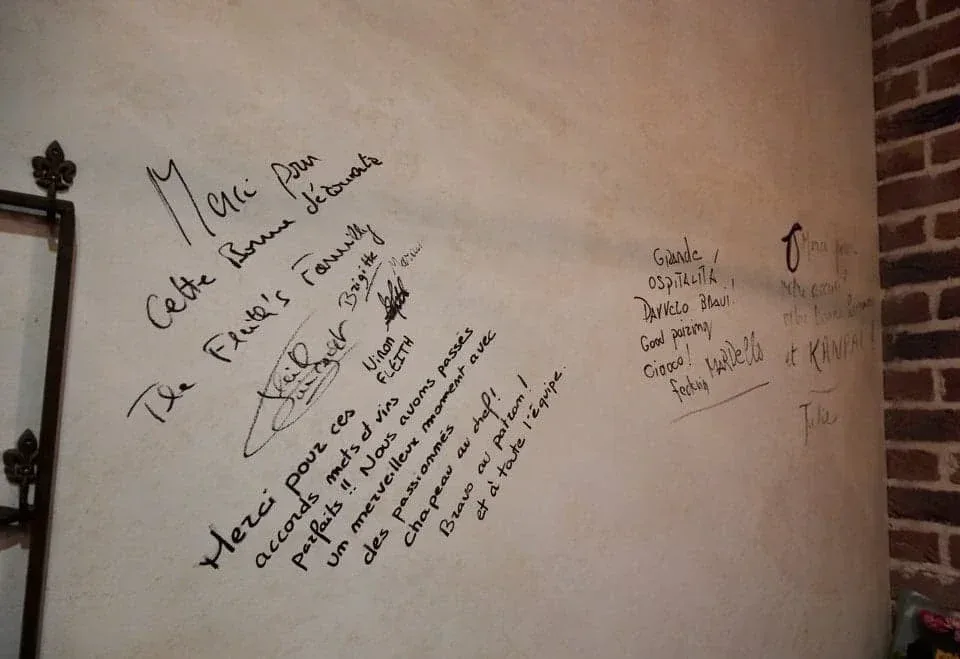 Merci pour
Cette Bonne découverte
The Fleith's Familly
Brigitte
Niron
FLEITH
Merci pour ces
accords mets et vins
parfaits !! Nous avons passés
un merveilleux moment avec
des passionnés
chapeau au chef!
Bravo au patron!
et à toute l'équipe.
GRANDE
OSPITALITÀ
DAVVERO BRAVI!
Good pairing
Ciaooo!
MARDello
Merci pour
et KANPAI !
Julie